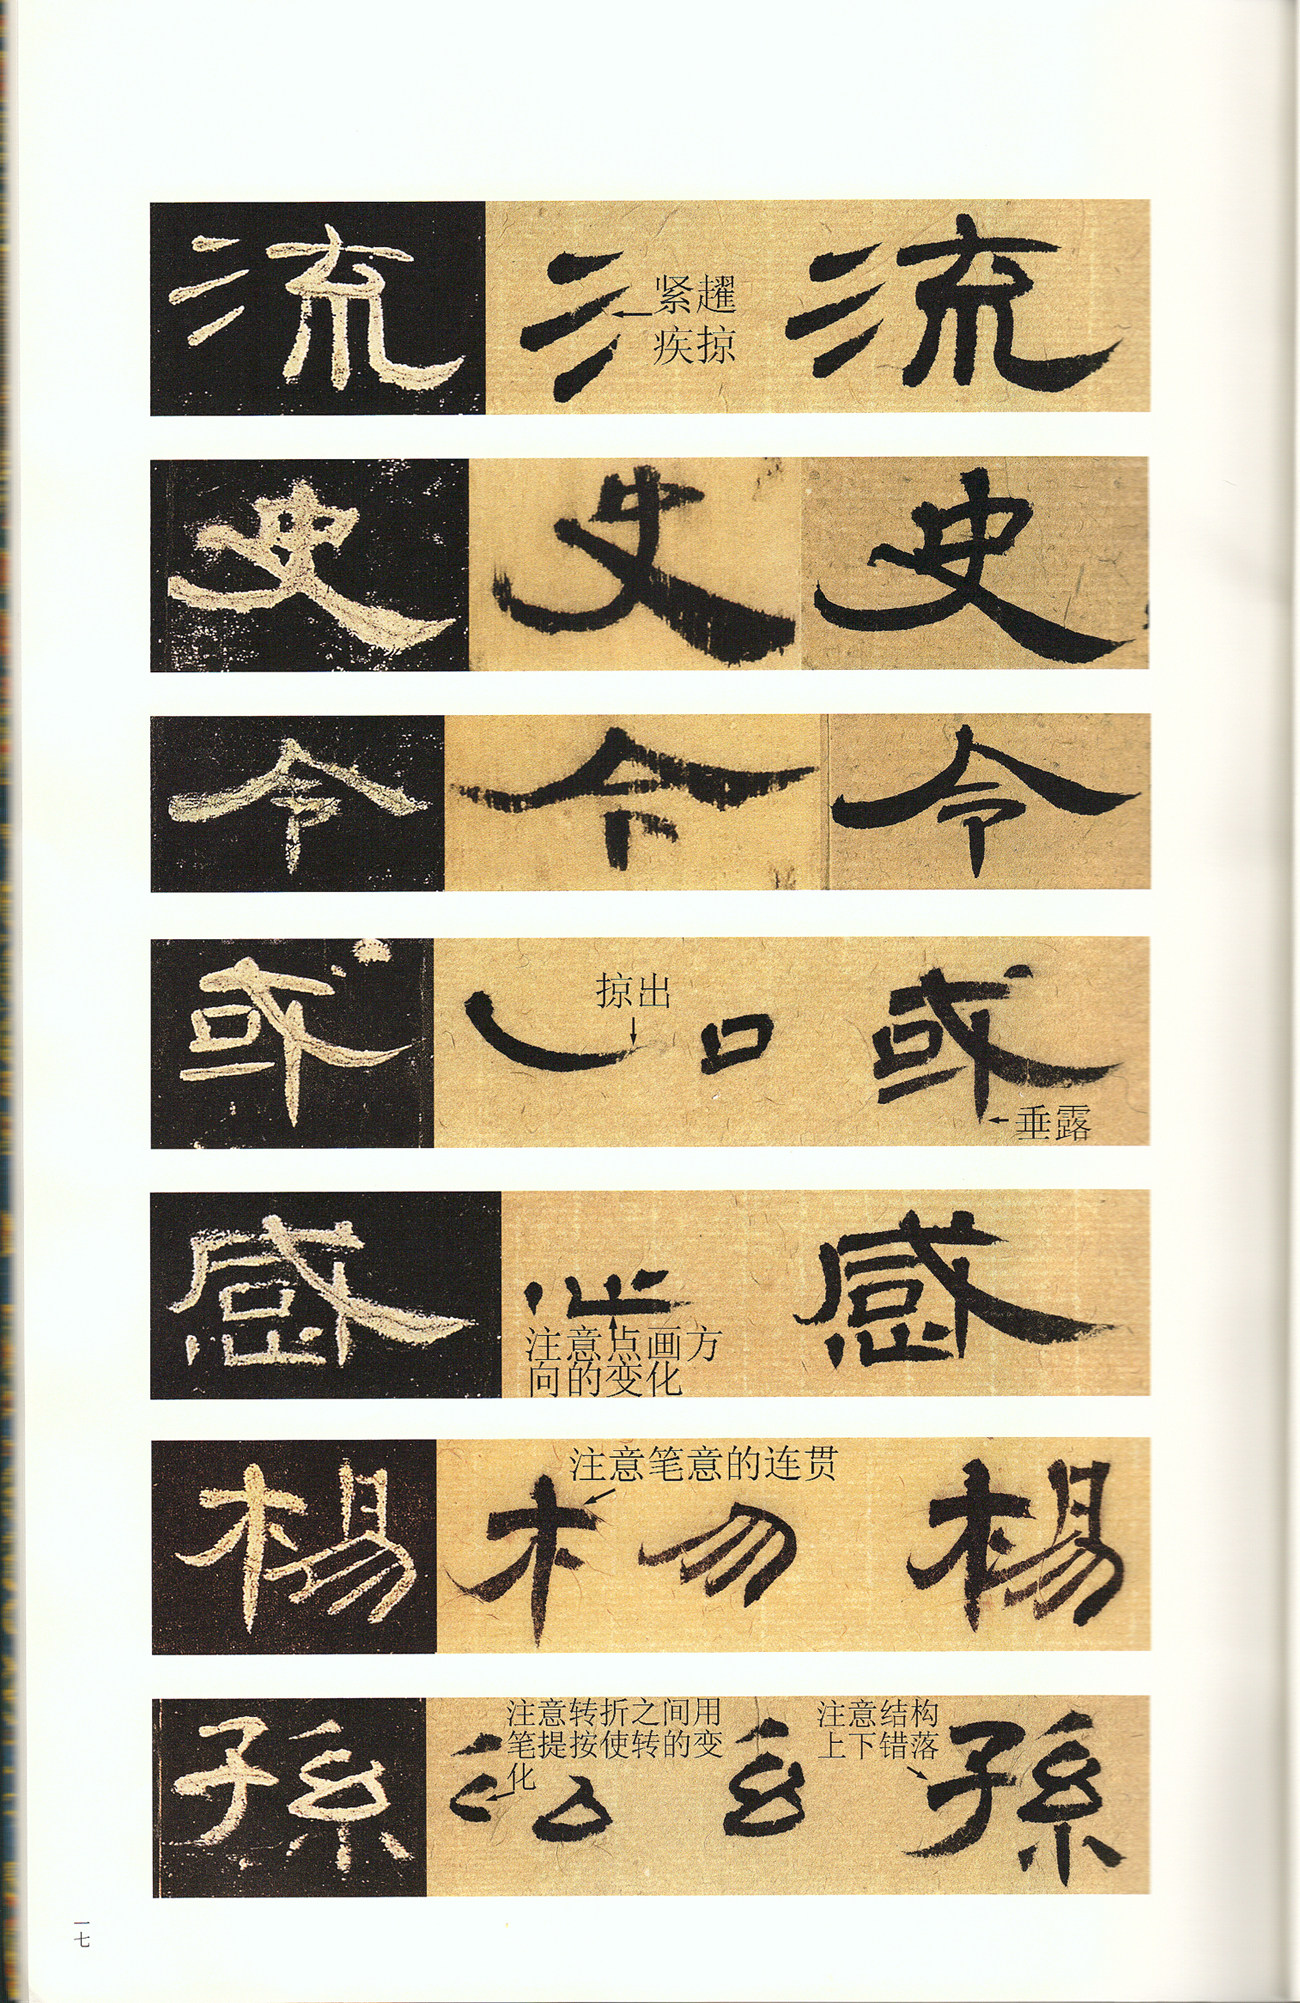 流 流
紧趯
疾掠
史 史 史
令 令 令
或 口 或
掠出
垂露
感 心 感
注意点画方
向的变化
楊 木 勿 楊
注意笔意的连贯
孫 孫
注意转折之间用
笔提按使转的变
化
注意结构
上下错落
一七